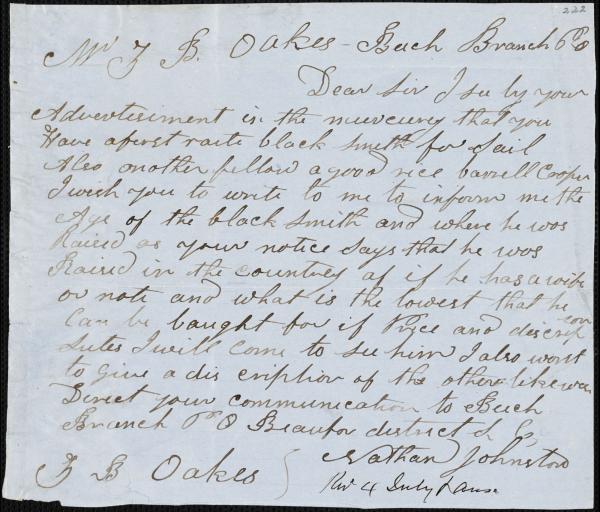 222
Mr Z B. Oakes - Buch Branch PO
Dear Sir I see by your
Advertisiment in the murcury that you
Have a ferst raite black Smith for Sail
Also another fellow a good rice barrell Cooper
I wish you to write to me to inform me the
Age of the black Smith and where he was
Raised as your notice Says that he was
Raised in the country as if he has a wife
or note and what is the lowest that he
Can be baught for if Price and discrip
cion
Sutes I will come to see him I also wont
to give a dis cription of the other like wise
Direct your communication to Buch
Branch PO Beaufor district S C
Nathan Johnston
Z B Oakes
4 July